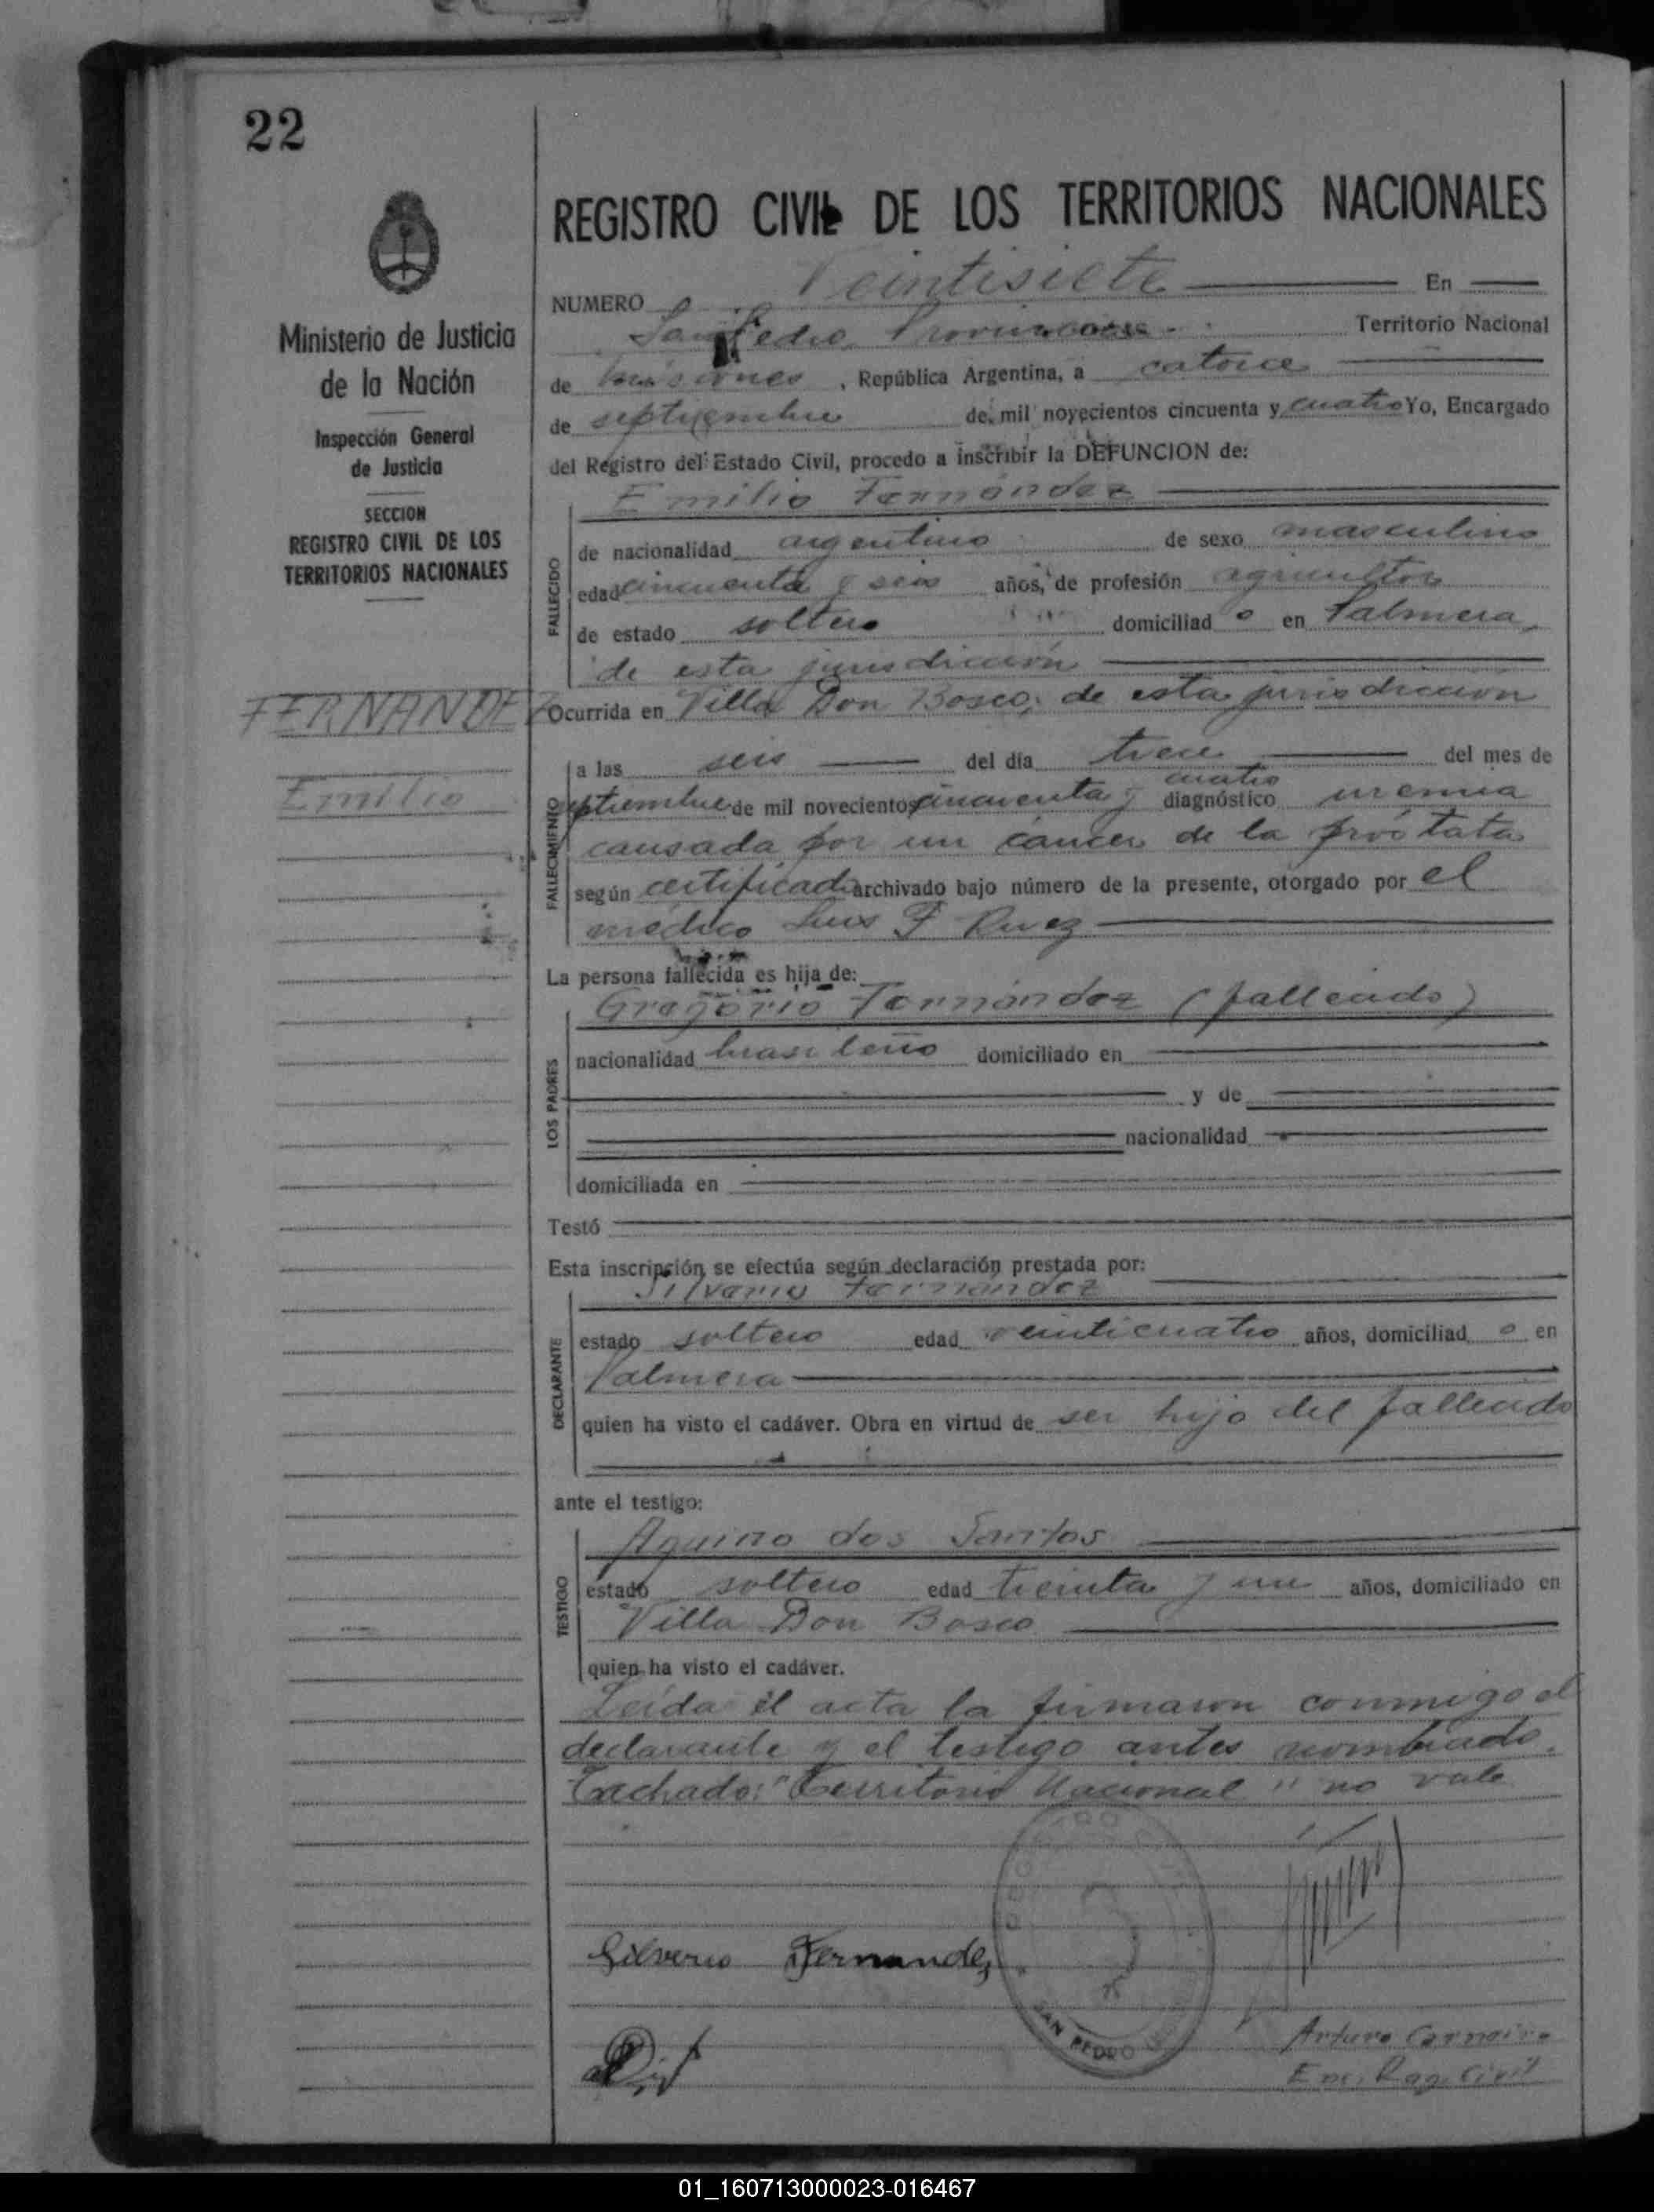 22
REGISTRO CIVIL DE LOS TERRITORIOS NACIONALES
Ministerio de Justicia
de la Nación
Inspección General
de Justicia
SECCION
REGISTRO CIVIL DE LOS
TERRITORIOS NACIONALES
FERNANDEZ
Emilio
NUMERO Veintisiete En
San Pedro Provincia Territorio Nacional
de Misiones, República Argentina, a catorce
de septiembre de mil novecientos cincuenta y cuatro Yo, Encargado
del Registro del Estado Civil, procedo a inscribir la DEFUNCION de:
Emilio Fernández
FALLECIDO
de nacionalidad argentino de sexo masculino
edad cincuenta y seis años, de profesión agricultor
de estado soltero domiciliad o en Palmera,
de esta jurisdicción
Ocurrida en Villa Don Bosco, de esta jurisdicción
FALLECIMIENTO
a las seis del día trece del mes de
septiembre de mil novecientos cincuenta y cuatro diagnóstico uremia
causada por un cáncer de la próstata
según certificado archivado bajo número de la presente, otorgado por el
médico Luis F
La persona fallecida es hija de:
LOS PADRES
Gregorio Fernández (fallecido)
nacionalidad brasileño domiciliado en
y de
nacionalidad
domiciliada en
Testó
Esta inscripción se efectúa según declaración prestada por:
DECLARANTE
Silverio Fernández
estado soltero edad veinticuatro años, domiciliad o en
Palmera
quien ha visto el cadáver. Obra en virtud de ser hijo del fallecido
ante el testigo:
TESTIGO
Aquino dos Santos
estado soltero edad treinta y un años, domiciliado en
Villa Don Bosco
quien ha visto el cadáver.
Leída el acta la firmaron conmigo el
declarante y el testigo antes nombrado.
Tachado: "Territorio Nacional" no vale
Silverio Fernandez
SAN PEDRO
Arturo Carneiro
Enc. Reg. Civil
01_160713000023-016467